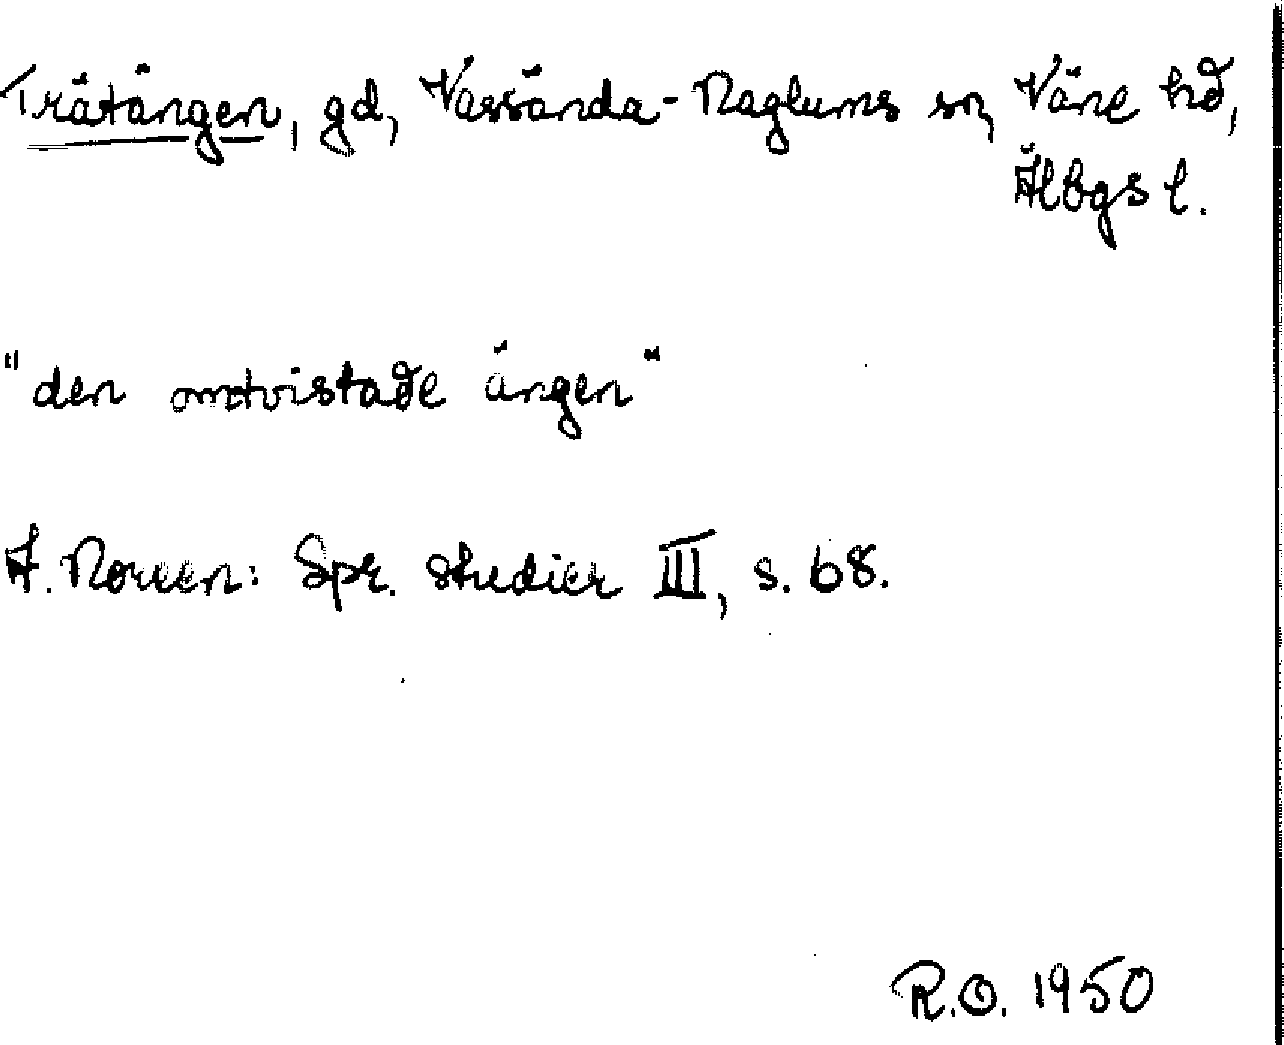 Trätängen, gd, Vassända-Naglums sn, Väne hd,
Älbgs l.
"den omtvistade ängen"
A. Noreen: Spr. studier III, s. 68.
R.O. 1950